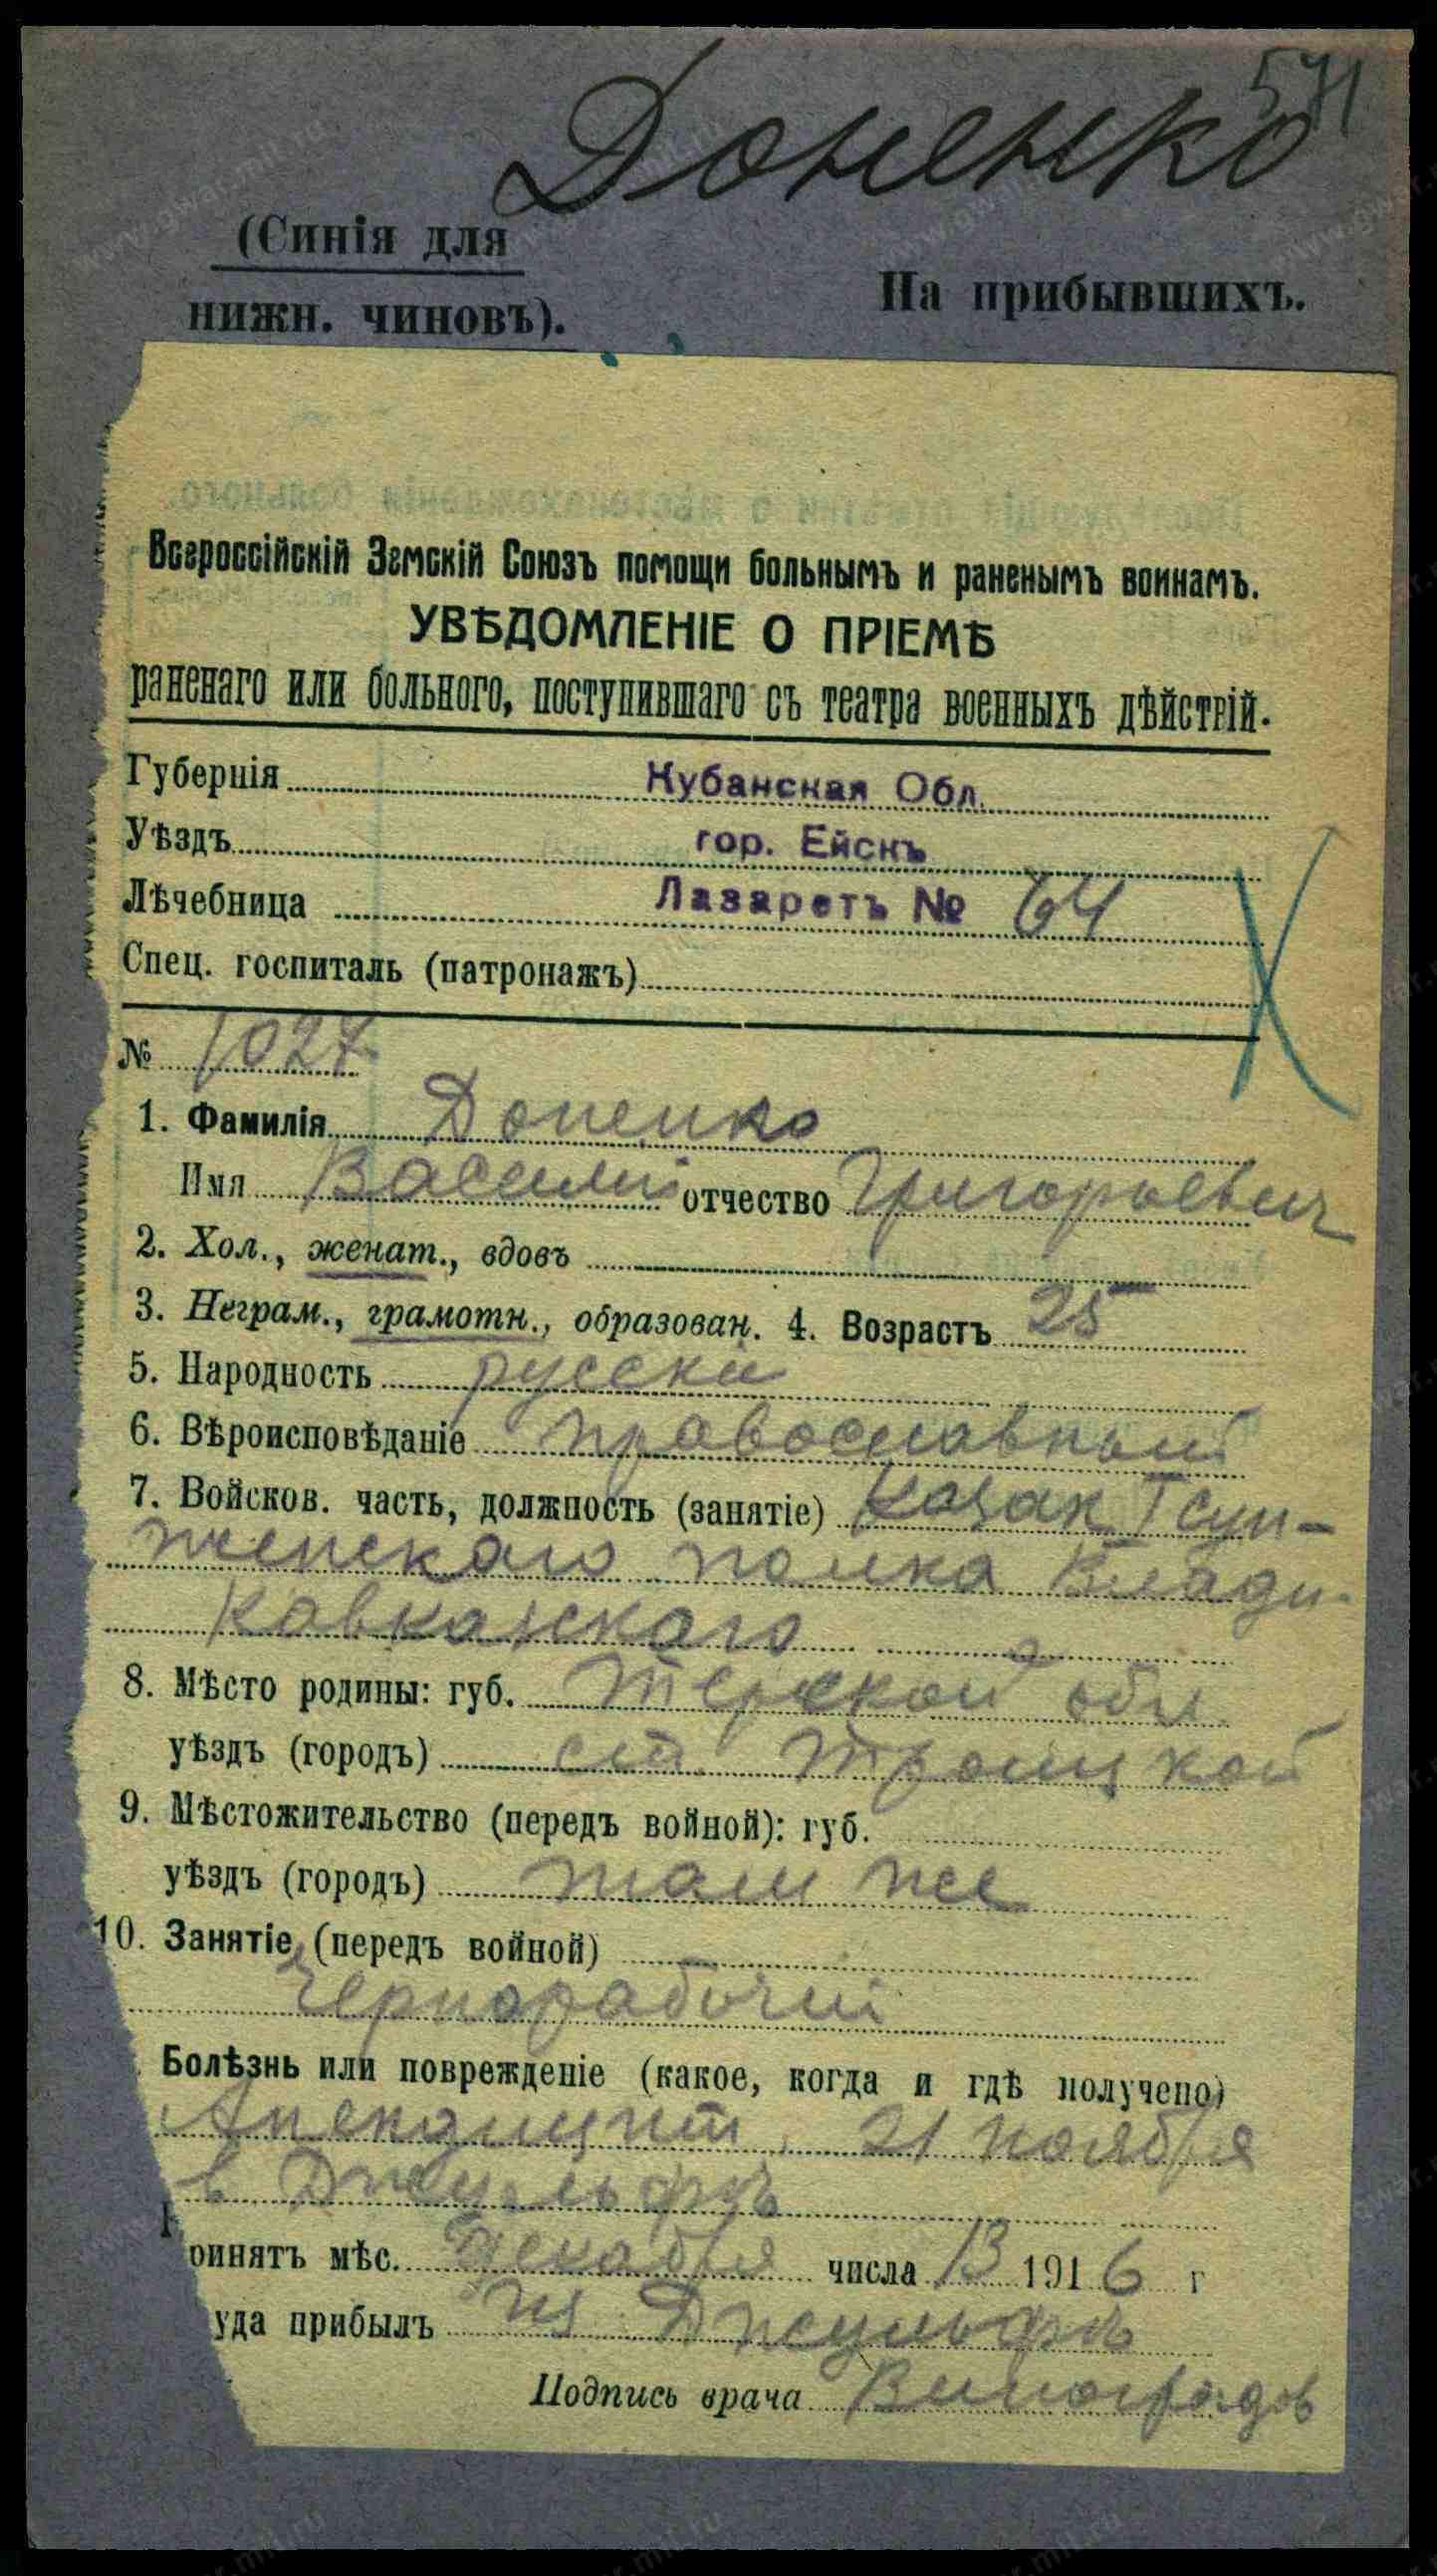 571
Доненко
(Синія для
нижн. чиновъ).
На прибывшихъ.
Всероссійскій Земскій Союзъ помощи больнымъ и раненымъ воинамъ.
УВѢДОМЛЕНІЕ О ПРІЕМѢ
раненаго или больного, поступившаго съ театра военныхъ дѣйствій.
Губернія Кубанская Обл.
Уѣздъ гор. Ейскъ
Лѣчебница Лазаретъ № 64
Спец. госпиталь (патронажъ)
№ 1027
1. Фамилія Доненко
Имя Василий отчество Григорьевич
2. Хол., женат., вдовъ
3. Неграм., грамотн., образован. 4. Возрастъ 25
5. Народность русский
6. Вѣроисповѣданіе православный
7. Войсков. часть, должность (занятіе) Казак I сун-
женскаго полка Влади-
кавказскаго
8. Мѣсто родины: губ. Терской обл.
уѣздъ (городъ) ст. Троицкой
9. Мѣстожительство (передъ войной): губ.
уѣздъ (городъ) там же
10. Занятіе (передъ войной)
Чернорабочий
Болѣзнь или поврежденіе (какое, когда и гдѣ получено)
Апендицит, 21 ноября
в Джульфѣ
ринятъ мѣс. Декабря числа 13 1916 г
уда прибылъ из Джульфы
Подпись врача Виноградов